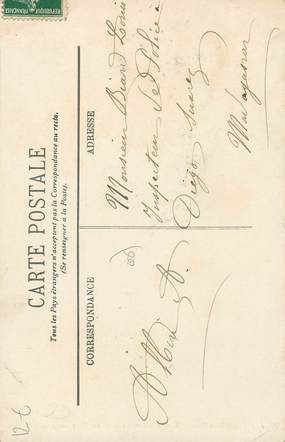 CARTE POSTALE
Tous les Pays étrangers n'acceptent pas la Correspondance au recto.
(Se renseigner à la Poste).
CORRESPONDANCE
ADRESSE
Monsieur Biard Louis
Inspecteur de Police à
Diego Suarez
Madagascar
12 €